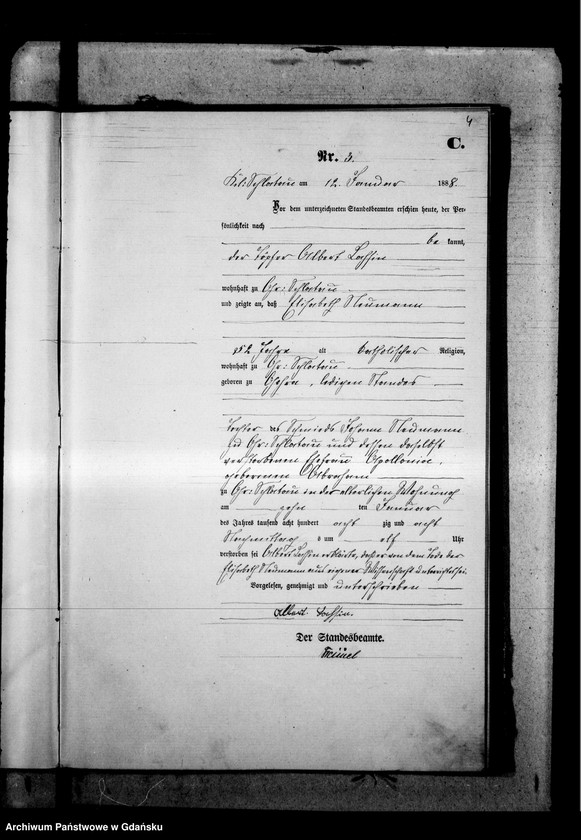 4
C.
Nr. 3.
Kl: Schlatau am 12. Januar 1888.
Vor dem unterzeichneten Standesbeamten erschien heute, der Per-
sönlichkeit nach
be kannt,
der Albert
wohnhaft zu Gr: Schlatau
und zeigte an, daß Elisabeth Neumann
52 Jahre alt katholischer Religion,
wohnhaft zu Gr: Schlatau
geboren zu , ledigen Standes
Tochter des Schmieds Johann Neumann
Gr: Schlatau und dessen daselbst
verstorbenen Ehefrau Apollonia,
geborenen Abraham
zu Gr: Schlatau in der elterlichen Wohnung
am zehn ten Januar
des Jahres tausend acht hundert acht zig und acht
Nachmittags um elf Uhr
verstorben sei Albert erklärte, daß er von dem Tode der
Elisabeth Neumann aus eigener Wissenschaft unterrichtet sei.
Vorgelesen, genehmigt und unterschrieben
Albert
Der Standesbeamte.
Archiwum Państwowe w Gdańsku